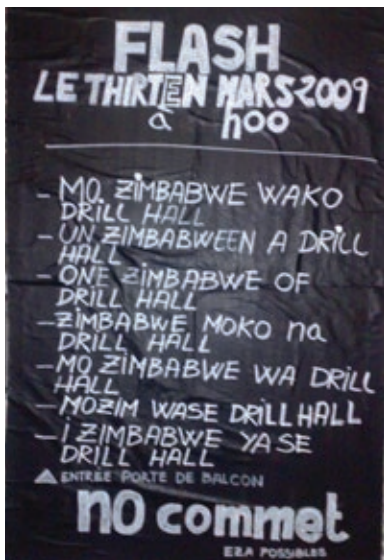 FLASH
LE THIRTEN MARS-2009
à hoo
- MO ZIMBABWE WAKO
DRILL HALL
- UN ZIMBABWEEN A DRILL
HALL
- ONE ZIMBABWE OF
DRILL HALL
- ZIMBABWE MOKO na
DRILL HALL
- MO ZIMBABWE WA DRILL
HALL
- MOZIM WASE DRILL HALL
- i ZIMBABWE YASE
DRILL HALL
ENTREE PORTE DE BALCON
no commet
EZA POSSIBLES